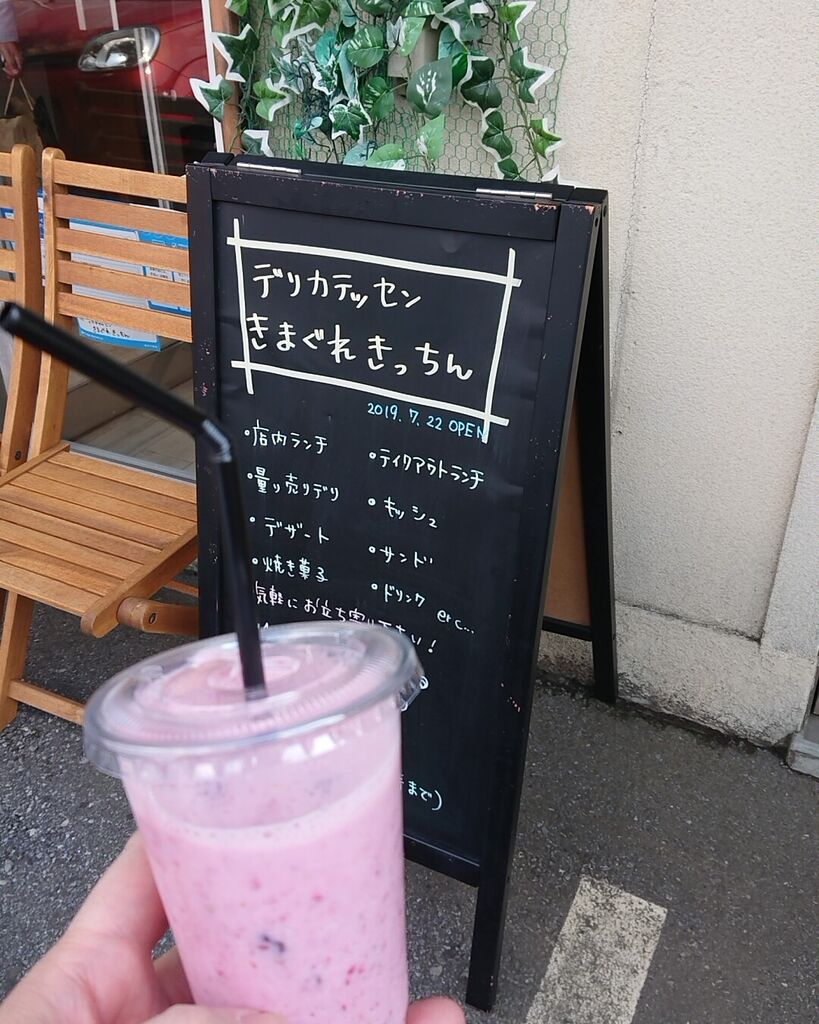 デリカテッセン
きまぐれきっちん
2019.7.22 OPEN
・店内ランチ
・テイクアウトランチ
・量り売りデリ
・キッシュ
・デザート
・サンド
・焼き菓子
・ドリンク etc...
気軽にお立ち寄り下さい!
まで)
きまぐれきっちん